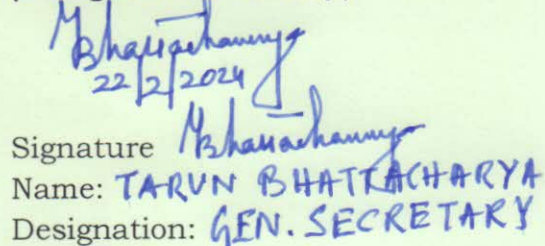 Bhattacharya
22/2/2024
Signature Bhattacharya
Name: TARUN BHATTACHARYA
Designation: GEN. SECRETARY